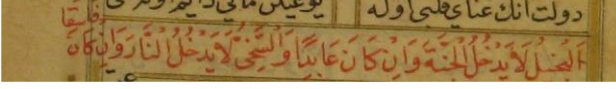 دولت انك عناي قلبي اوله
البخيل لا يدخل الجنة وان كان عابدا والسخي لا يدخل النار وان كان
فاسقا